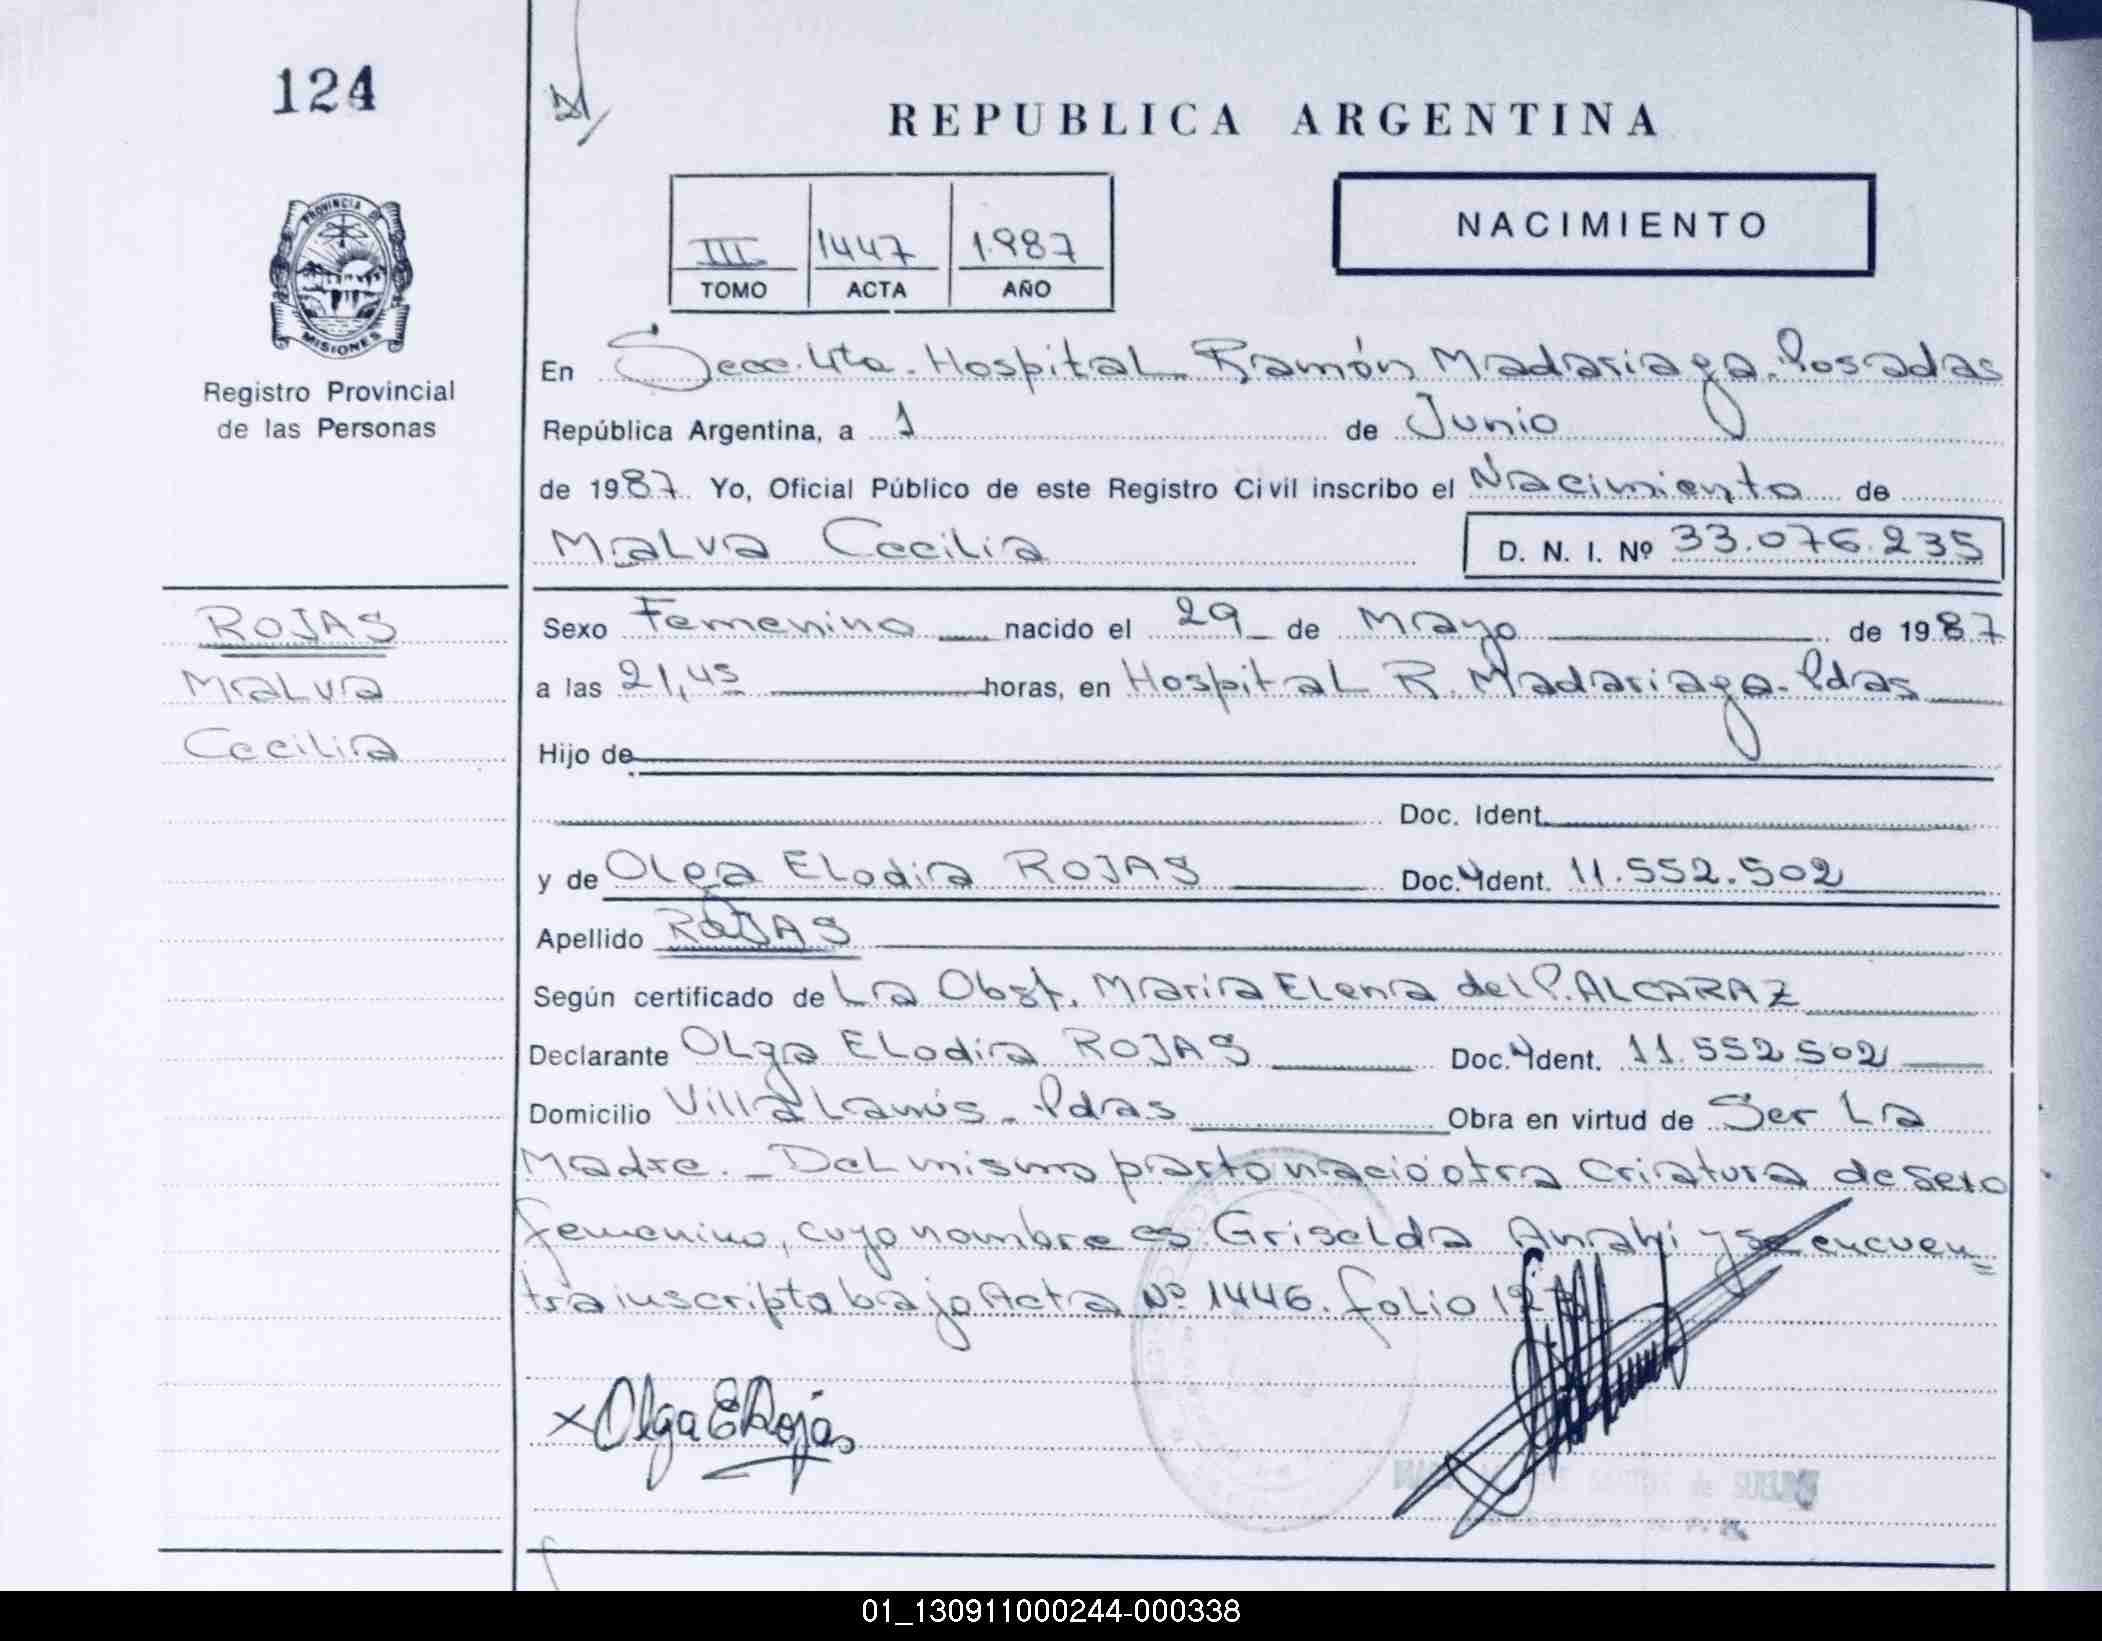 124
REPUBLICA ARGENTINA
NACIMIENTO
III 1447 1987
TOMO ACTA AÑO
PROVINCIA DE
MISIONES
Registro Provincial
de las Personas
En Secc. 4ta. Hospital Ramón Madariaga. Posadas
República Argentina, a 1 de Junio
de 1987. Yo, Oficial Público de este Registro Civil inscribo el Nacimiento de
Malva Cecilia D. N. I. Nº 33.076.235
ROJAS
Malva
Cecilia
Sexo Femenino nacido el 29 de Mayo de 1987
a las 21,45 horas, en Hospital R. Madariaga. Pdas
Hijo de
Doc. Ident.
y de Olga Elodia ROJAS Doc. Ident. 11.552.502
Apellido ROJAS
Según certificado de La Obst. María Elena del P. ALCARAZ
Declarante Olga Elodia ROJAS Doc. Ident. 11.552.502
Domicilio Villa Lanús - Pdas Obra en virtud de Ser La
Madre. - Del mismo parto nació otra criatura de sexo
femenino, cuyo nombre es Griselda Anahí y se encuen=
tra inscripta bajo Acta Nº 1446. folio
x Olga E Rojas
01_130911000244-000338